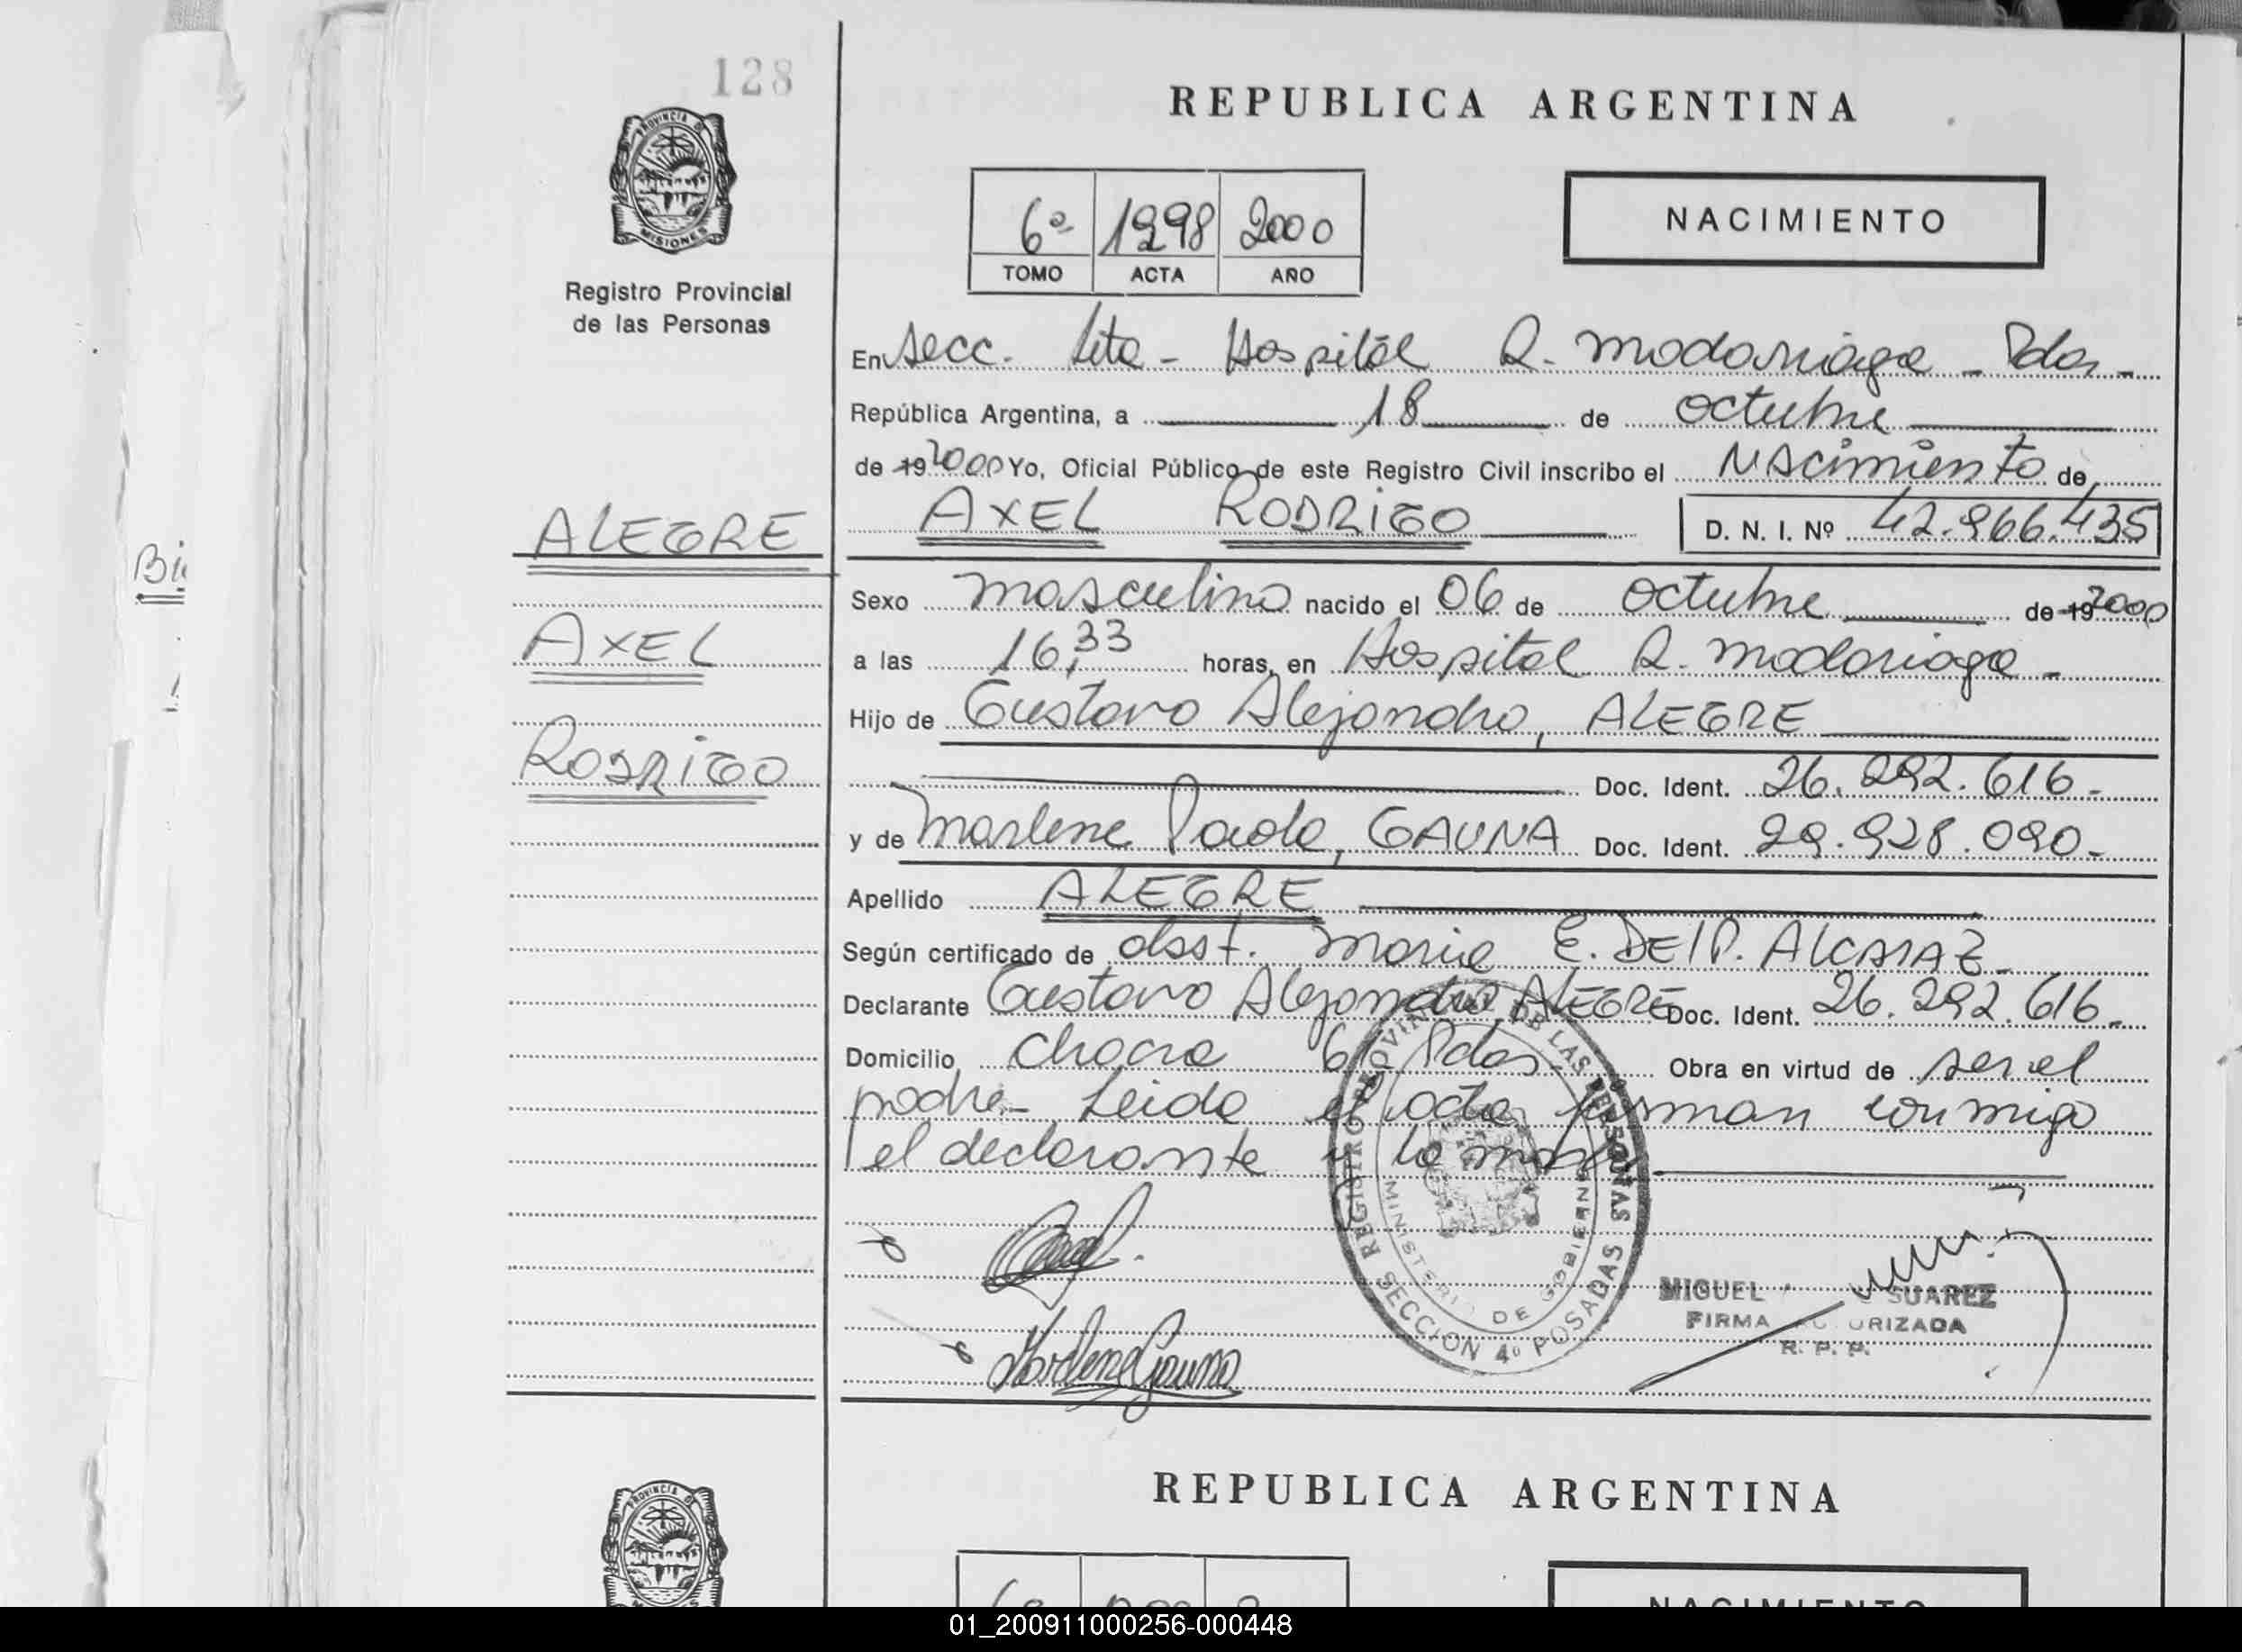 128
REPUBLICA ARGENTINA
PROVINCIA DE
MISIONES
Registro Provincial
de las Personas
6º 1298 2000
TOMO ACTA AÑO
NACIMIENTO
En secc. 4ta - Hospital R. Madariaga - Pdas -
República Argentina, a 18 de octubre
de 19 2000 Yo, Oficial Público de este Registro Civil inscribo el Nacimiento de
ALEGRE
AXEL RODRIGO D. N. I. Nº 42.966.435
Sexo masculino nacido el 06 de octubre de 19 2000
AXEL
a las 16,33 horas, en Hospital R. Madariaga -
Hijo de Gustavo Alejandro, ALEGRE
RODRIGO
Doc. Ident. 26.292.616 -
y de Marlene Paola, GAUNA Doc. Ident. 29.928.090 -
Apellido ALEGRE
Según certificado de obst. Maria E. DEl P. AlCARAZ -
Declarante Gustavo Alejandro, ALEGRE Doc. Ident. 26.292.616 -
Domicilio Chacra Pdas - Obra en virtud de ser el
padre - Leida el acta firman conmigo
el declarante y la
REGISTRO PROVINCIAL DE LAS PERSONAS
MINISTERIO DE GOBIERNO
SECCION 4º POSADAS
MIGUEL SUAREZ
FIRMA
R. P. P.
Marlene Gauna
REPUBLICA ARGENTINA
PROVINCIA DE
NACIMIENTO
01_200911000256-000448